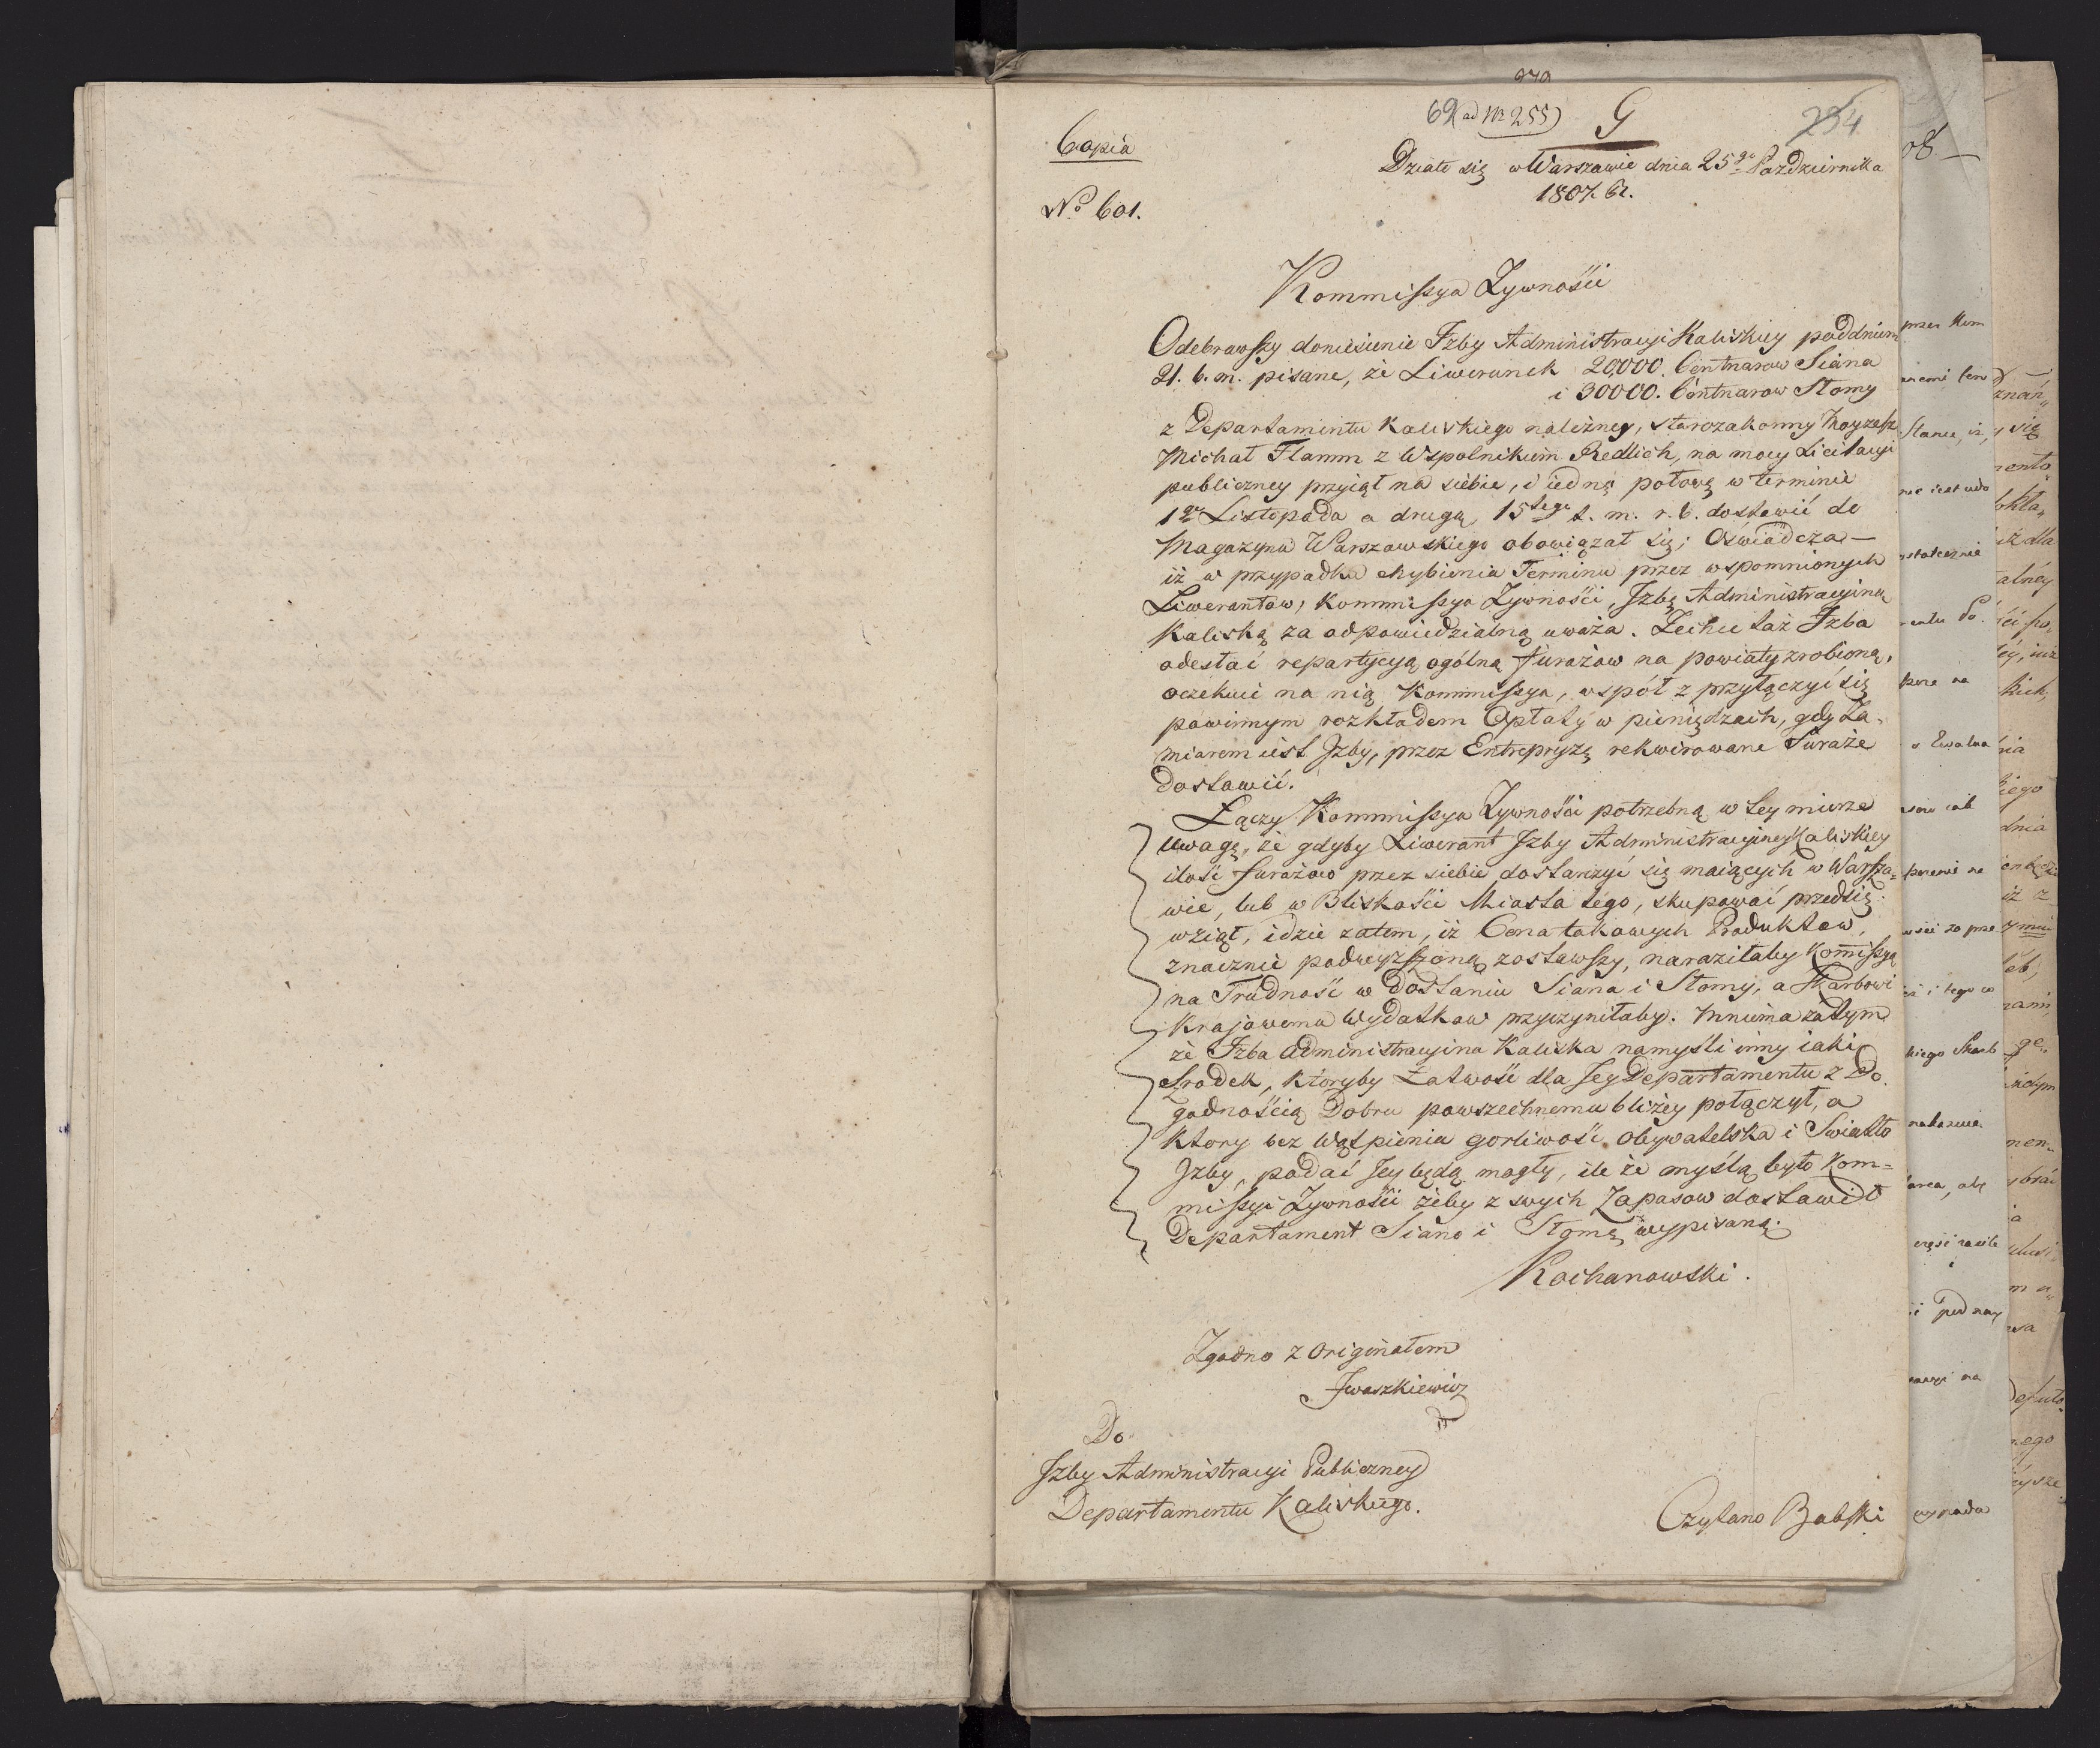 69 (ad Nr 255) G 254
Copia
Działo się w Warszawie dnia 25go Października
1807. R.
No 601.
Kommissya Zywności
Odebrawszy doniesienie Izby Administracyi Kaliskiey pod dniem
21. b. m. pisane, że Liwerunek 20,000. Centnarow Siana
i 30000. Centnarow Słomy
z Departamentu Kaliskiego należney, starozakonny Moyzesz
Michał Flamm z Wspolnikiem Redlich, na mocy Licitacyi
publiczney przyiął na siebie, i iedną połowę w terminie
1go Listopada a drugą 15tego t. m. r. b. dostawić do
Magazynu Warszawskiego obowiązał się; Oświadcza —
iż w przypadku chybienia Terminu przez wspomnionych
Liwerantow, Kommissya Zywności, Izbę Administracyiną
Kaliską za odpowiedzialną uważa. Zechce taż Izba
odesłać repartycyą ogólną furażow na powiaty zrobioną,
oczekuie na nią Kommissya, współ z przyłączyć się
powinnym rozkładem Opłaty w pieniędzach, gdy Za-
miarem iest Izby, przez Entrepryzę rekwirowane Furaże
dostawić.
Łączy Kommissya Zywności potrzebną w tey mierze
uwagę, że gdyby Liwerant Izby Administracyiney Kaliskiey
ilość furażow przez siebie dostarczyć się maiących w Warsza-
wie, lub w Bliskości Miasta tego, skupować przedsię-
wziął, idzie zatem, iż Cena takowych Produktow,
znacznie podwyzszoną zostawszy, naraziłaby Komissyą
na Trudność w Dostaniu Siana i Słomy, a Skarbowi
Krajowemu Wydatkow przyczyniłaby. Mniema zatym
że Izba Administracyina Kaliska namyśli inny iaki
Srodek, któryby Łatwość dla Jey Departamentu z Do-
godnością Dobru powszechnemu bliżey połączył, a
Ktory bez Wątpienia gorliwość obywatelska i Swiatło
Izby, podać Jey będą mogły, ile że myślą było Kom-
missyi Zywności żeby z swych Zapasow dostawił
Departament Siano i Słomę wypisaną.
Kochanowski.
Zgodno z Originałem
Iwaszkiewicz
Do
Izby Administracyi Publiczney
Departamentu Kaliskiego.
Czytano Babski